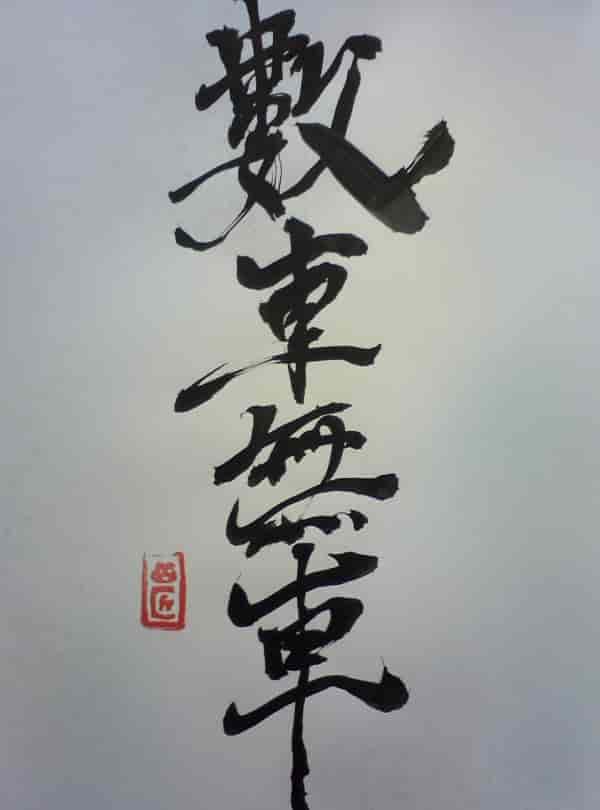 數車無車